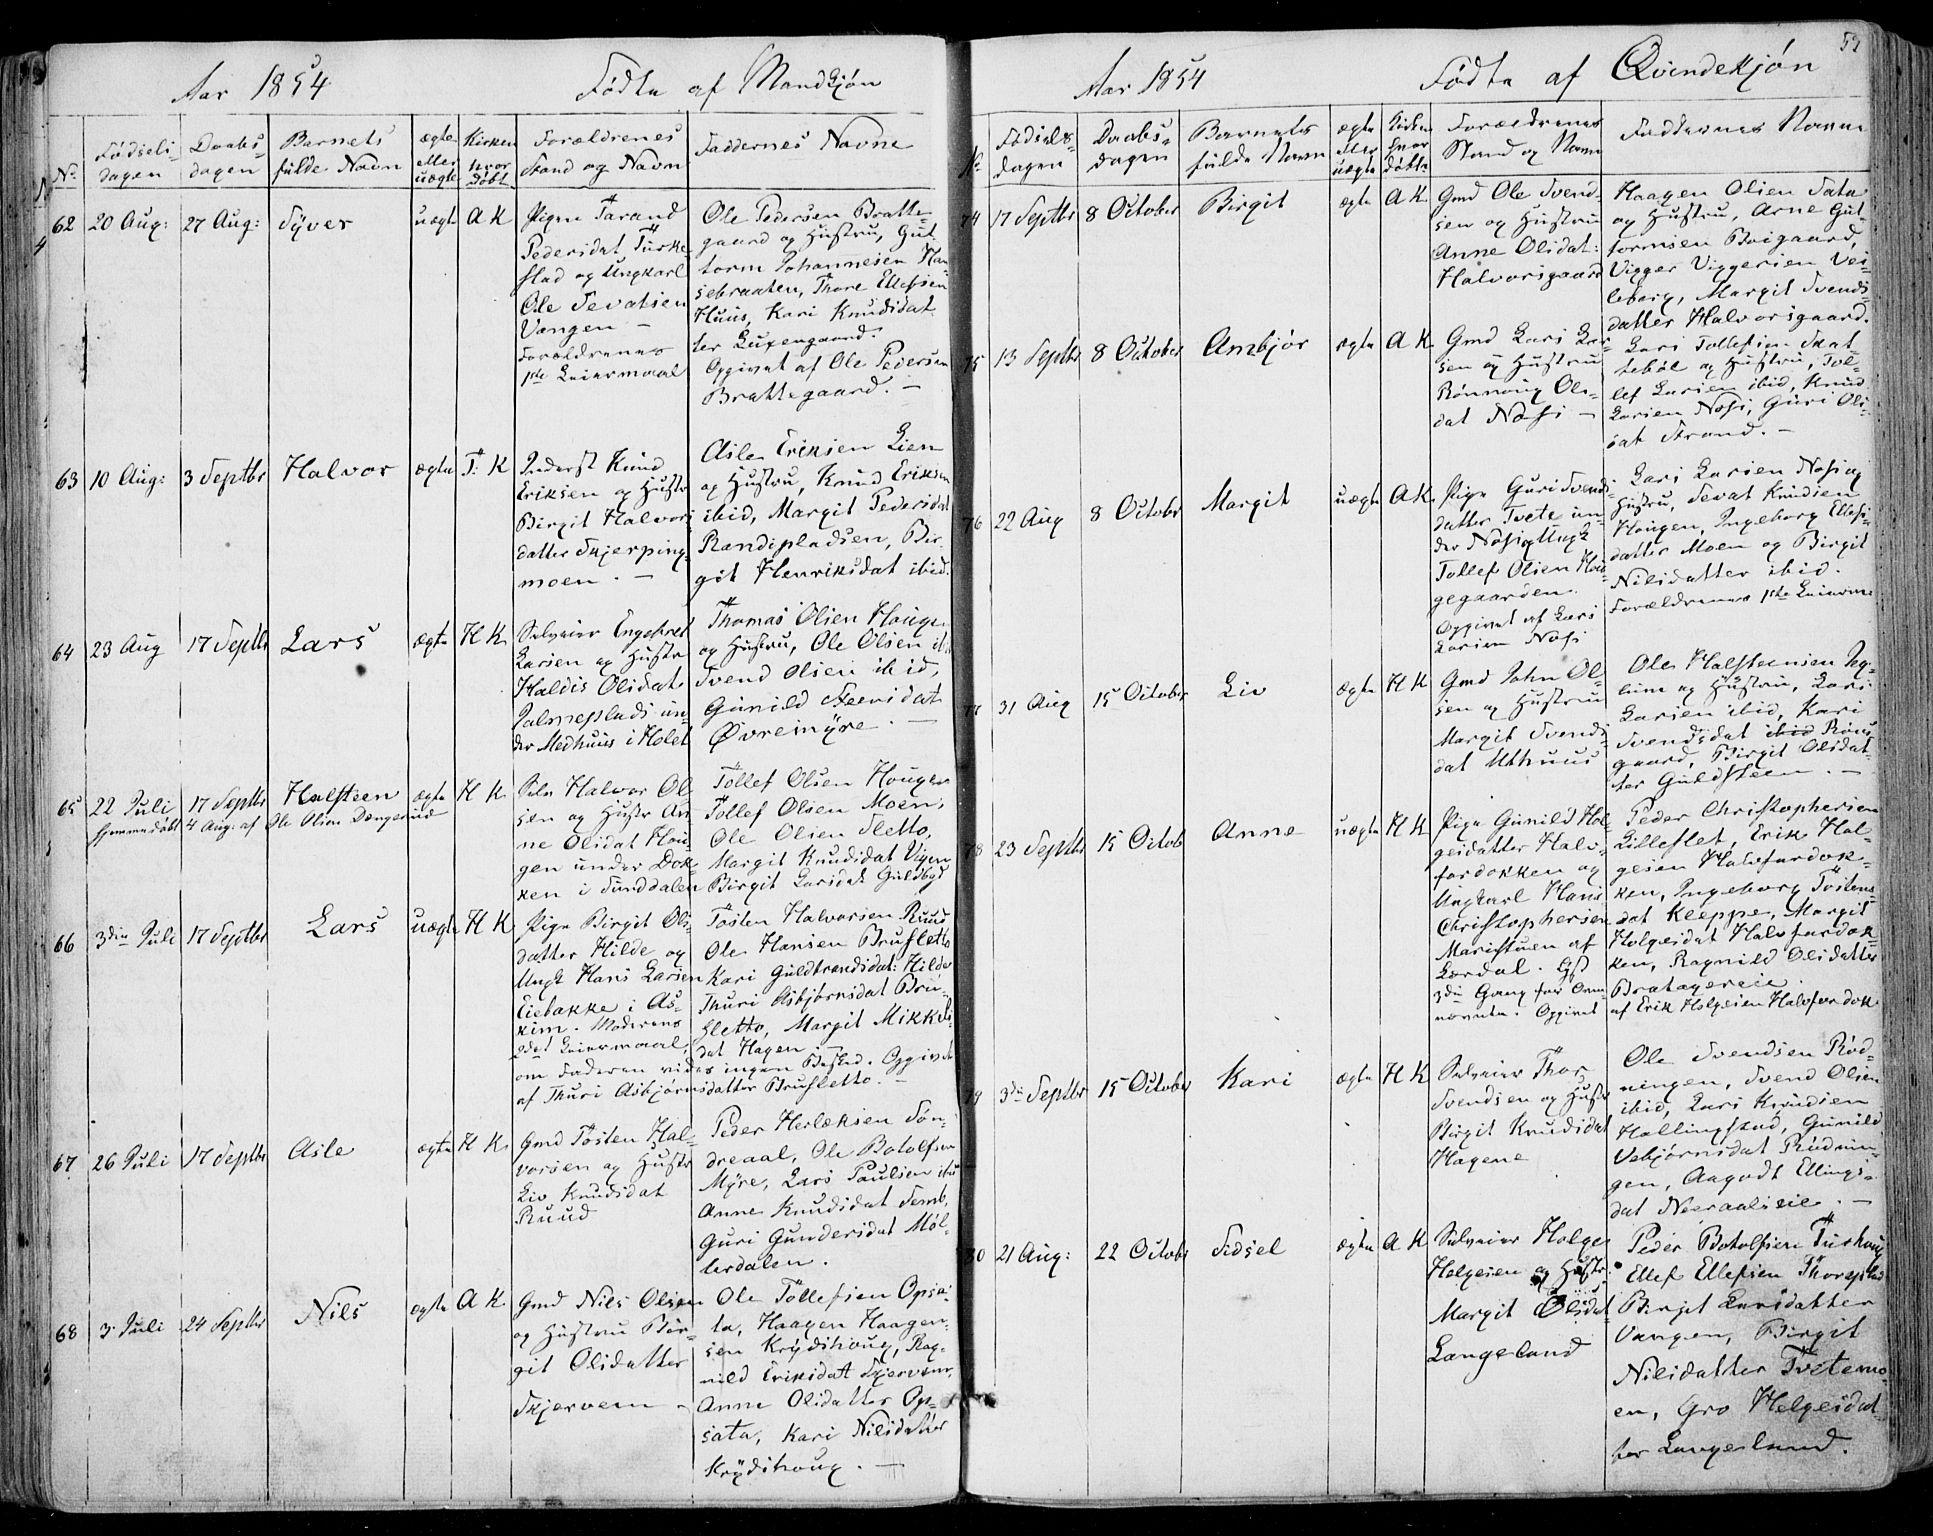 Aar 1854
Fødte af Mandkjøn
No
Fødsels-
dagen
Daabs-
dagen
Barnets
fulde Navn
ægte
eller
uægte
Kirken
hvor
døbt
Forældrenes
Stand og Navn
Faddernes Navne
62
20 Aug:
27 Aug:
Syver
uægte
A K
Pigen Tarand
Pedersdat Turke-
stad og Ungkarl
Ole Sevatsen
Vangen –
Forældrenes
1ste Leiermaal
Ole Pedersen Bratte-
gaard og Hustru, Gut-
torm Johannesen
sebraaten, Thore Ellefsen
Huus, Kari Knudsdat-
ter
Opgivet af Ole Pedersen
Brattegaard. –
63
10 Aug:
3 Septbr
Halvor
ægte
T: K
Inderst Knud
Eriksen og Hustr
Birgit Halvors
datter Skjerping-
moen. –
Asle Eriksen Lien
og Hustru, Knud Eriksen
ibid, Margit Pedersdat
Randipladsen, Bir-
git Henriksdat ibid.
64
23 Aug
17 Septbr
Lars
ægte
H K
Selveier Engebret
Larsen og Hustr
Haldis Olsdat.
un-
der Medhuus i Holet
Thomas Olsen Hougen
og Hustru, Ole Olsen ib.
Svend Olsen ibid,
Gunild
Øvremyre. –
65
22 Juli
17 Septbr
Halsteen
ægte
H K
hjemmedøbt 4 Aug: af Ole Olsen Dengerud
Selv Halvor Ol-
sen og Hustr An-
ne Olsdat Hou-
gen under Dok-
ken i Sunddalen
Tollef Olsen Hougen
Tollef Olsen Moen,
Ole Olsen Sletto,
Margit Knudsdat Vigen
Birgit Larsdat Guldbye
66
3die Juli
17 Septbr
Lars
uægte
H K
Pige Birgit Ols-
datter Hilde og
Ungk Hans Larsen
Eiebakke i As-
kim. Moderens
2det Leiermaal,
om Faderen vides ingen Besked. Opgivet
af Thuri Asbjørnsdatter Brusletto. –
Tosten Halvorsen Ruud
Ole Hansen Brusletto
Kari Guldbrandsdat: Hilde
Thuri Asbjørnsdat Bru-
sletto, Margit Mikkels-
dat Hagen –
67
26 Juli
17 Septbr
Asle
ægte
H K
Gmd Tosten Hal-
vorsen og Hustr
Liv Knudsdat
Ruud
Peder Herleksen Søn-
dreaal, Ole Botolfsen
Myre, Lars Paulsen ibid
Anne Knudsdat Semb,
Guri Gundersdat Møl-
lerdalen.
68
3 Juli
24 Septbr
Nils
ægte
A K
Gmd Nils Olsen
og Hustru Bir-
git Olsdatter
Skjerveim –
Ole Tollefsen Opsa-
ta, Haagen Haagen-
sen Krydshoug, Rag-
nild Eriksdat Skjerveim,
Anne Olsdatter Op-
sata, Kari Nilsdatter
Krydshoug. –
53
Aar 1854
Fødte af Qvindekjøn
No
Fødsels-
dagen
Daabs-
dagen
Barnets
fulde Navn
ægte
eller
uægte
Kirken
hvor
døbt
Forældrenes
Stand og Navn
Faddernes Navne
74
17 Septbr
8 October
Birgit
ægte
A K
Gmd Ole Svend-
sen og Hustru
Anne Olsdat:
Halvorsgaard
Haagen Olsen Sata
og Hustru, Arne Gut-
tormsen Boigaard,
Vigger Viggersen Vei-
leberg, Margit Svends-
datter Halvorsgaard.
75
13 Septbr
8 October
Ambjør
ægte
A K
Gmd Lars Lar-
sen og Hustru
Rønnoug Ols-
dat Næsi –
Lars Tollefsen Skat-
tebøl og Hustru, Tol-
lef Larsen ibid, Knud
Larsen Næsi, Guri Ols-
dat Strand. –
76
22 Aug
8 October
Margit
uægte
A K
Pige Guri Svends-
datter Tvete un-
der Næsi og Ungk
Tollef Olsen Hou-
gegaarden.
Opgivet af Lars
Larsen Næsi
Lars Larsen Næsi og
Hustru, Sevat Knudsen
Hougen, Ingeborg Ellefs-
datter Moen og Birgit
Nilsdatter ibid.
Forældrenes 1ste Leierm
77
31 Aug
15 October
Liv
ægte
H K
Gmd John Ol-
sen og Hustru
Margit Svends-
dat Uthuus
Ole Halsteensen
og Hustru, Lars
Larsen ibid, Kari
Svendsdat ibid
gaard, Birgit Olsdat-
ter Guldsteen. –
78
23 Septbr
15 Octob
Anne
uægte
H K
Pige Gunild Hol-
geisdatter Halv-
fardokken og
Ungkarl Hans
Christophersen
Maristuen af
Lærdal. Gs
3die Gang for Qvin-
Opgivet
Peder Christophersen
Lilleslet, Erik Hol-
geisen Halvfardok-
ken, Ingeborg Tostens-
dat Kleppe, Margit
Holgeisdat Halvfardok-
ken, Ragnild Olsdatter
Bratagereie.
af Erik Holgeisen Halvfardok
79
3die Septbr
15 October
Kari
ægte
H K
Selveier Thor
Svendsen og Hustr
Birgit Knudsdat
Hagene
Ole Svendsen Rød-
ningen, Svend Olsen
ibid, Lars Knudsen
Hallingstad, Gunild
Vebjørnsdat Rødnin-
gen, Aagodt Ellings-
dat Noraalseie. –
80
21 Aug:
22 Octobr
Sidsel
ægte
A K
Selveier Holge
Holgesen og Hustr:
Margit Olsdat
Langeland
Peder Botolfsen Turhoug
Ellef Ellefsen
Birgit Larsdatter
Vangen, Birgit
Nilsdatter Tvetemo-
en, Gro Helgesdat-
ter Langeland.